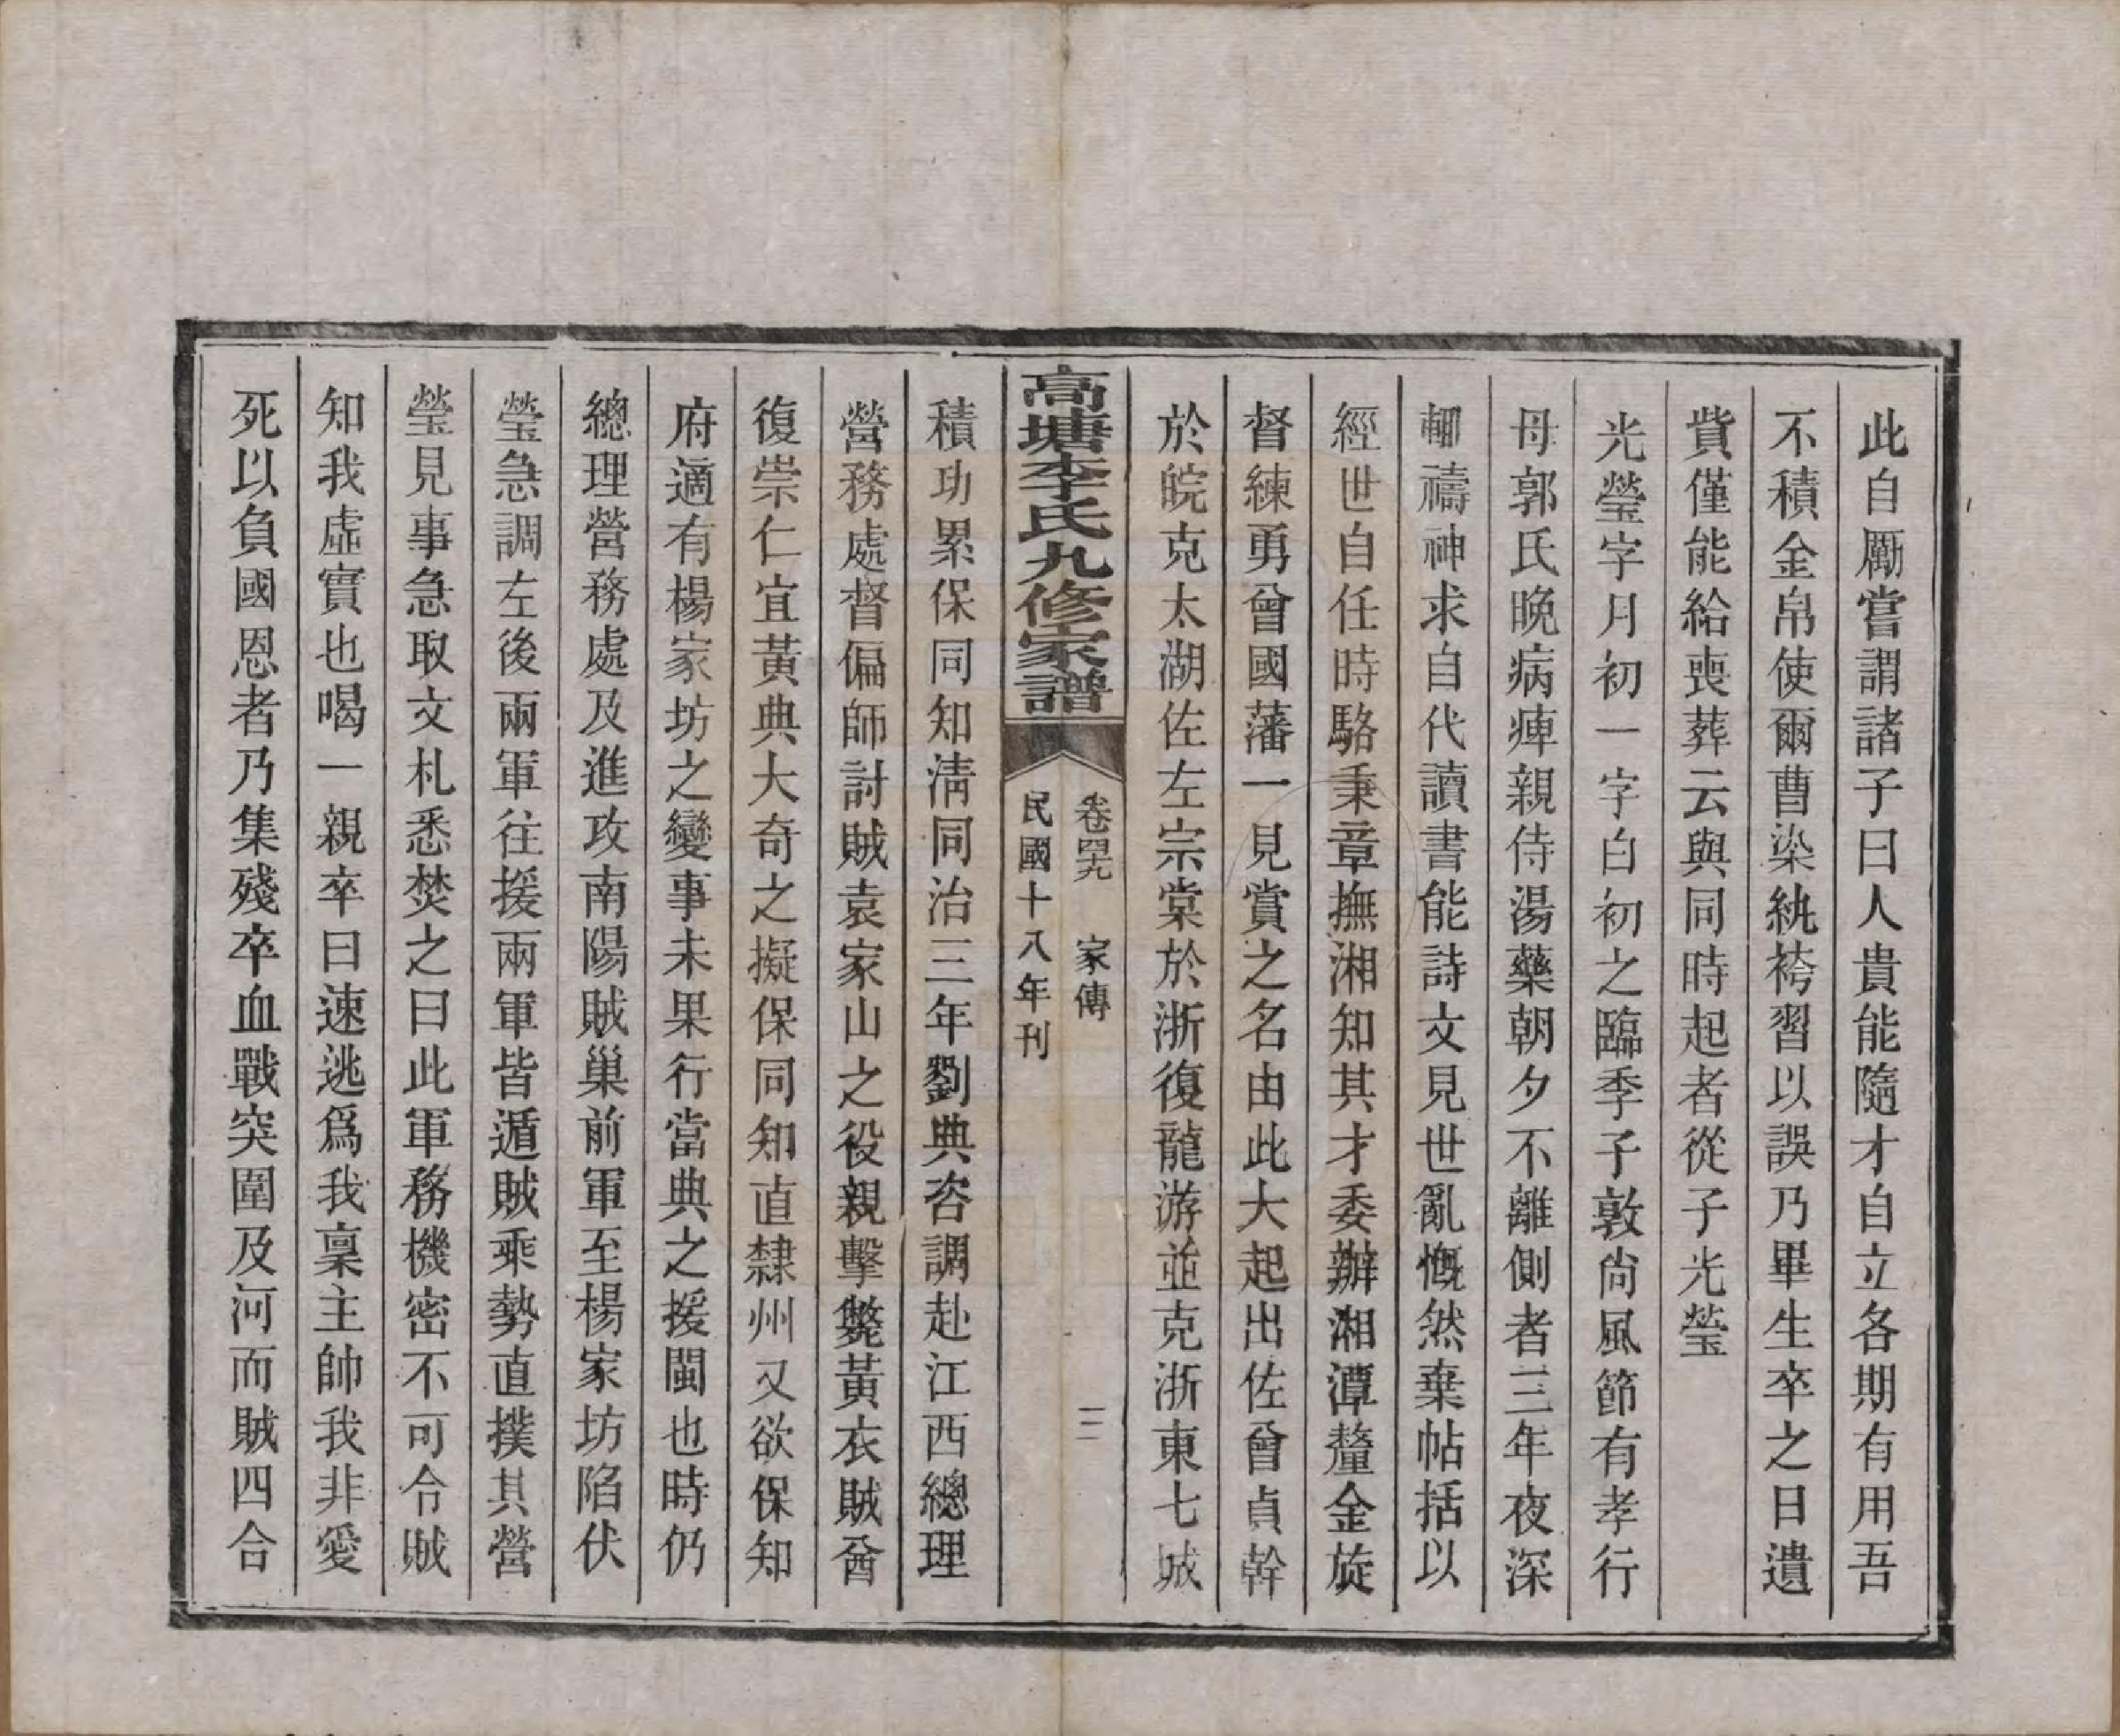 此自厲嘗謂諸子曰人貴能隨才自立各期有用吾
不積金帛使爾曹染紈袴習以誤乃畢生卒之日遺
貲僅能給喪葬云與同時起者從子光瑩
光瑩字月初一字白初之臨季子敦尙風節有孝行
母郭氏晚病痺親侍湯藥朝夕不離側者三年夜深
輒禱神求自代讀書能詩文見世亂慨然棄帖括以
經世自任時駱秉章撫湘知其才委辦湘潭釐金旋
督練勇曾國藩一見賞之名由此大起出佐曾貞幹
於皖克太湖佐左宗棠於浙復龍游並克浙東七城
高塘李氏九修家譜
卷四九 家傳
三
民國十八年刊
積功累保同知淸同治三年劉典咨調赴江西總理
營務處督偏師討賊袁家山之役親擊斃黃衣賊酋
復崇仁宜黃典大奇之擬保同知直隸州又欲保知
府適有楊家坊之變事未果行當典之援閩也時仍
總理營務處及進攻南陽賊巢前軍至楊家坊陷伏
瑩急調左後兩軍往援兩軍皆遁賊乘勢直撲其營
瑩見事急取文札悉焚之曰此軍務機密不可令賊
知我虛實也喝一親卒曰速逃爲我稟主帥我非愛
死以負國恩者乃集殘卒血戰突圍及河而賊四合